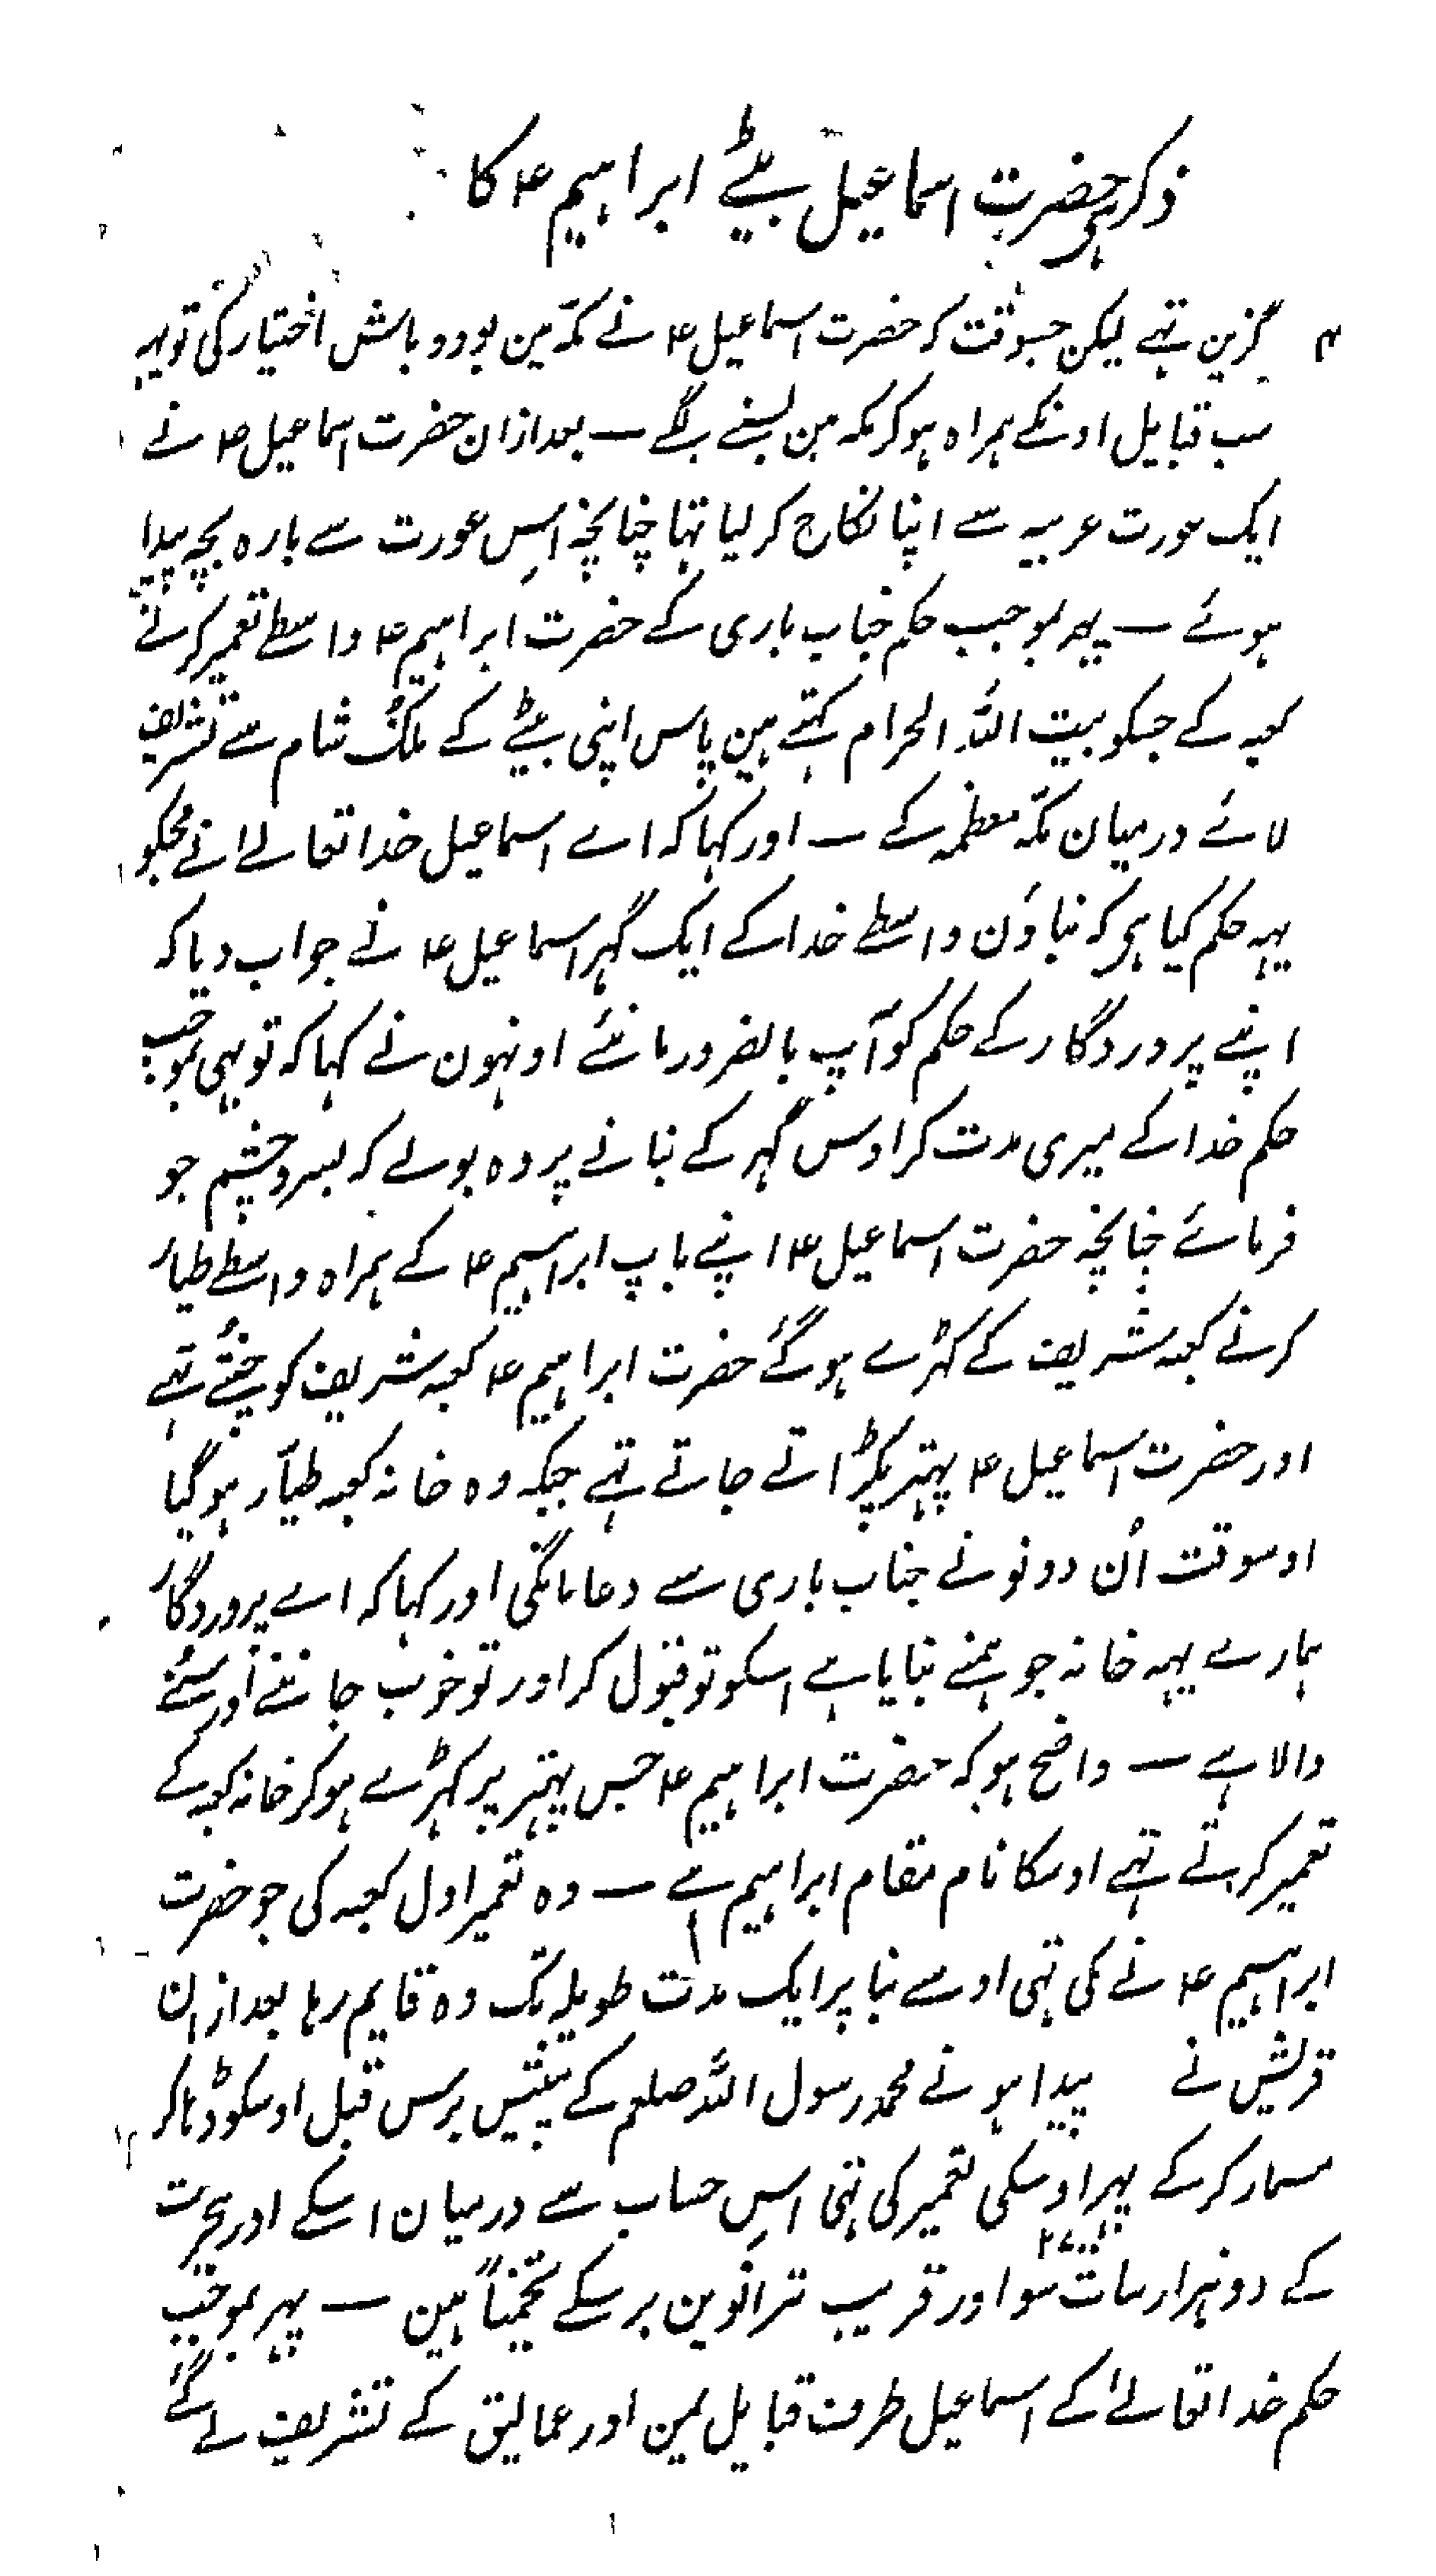 ذکر ہی حضرت اسماعیل بیٹے ابراہیم ۴ کا
گزین تہے لیکن جسوقت کہ حضرت اسماعیل ۴ نے مکّہ مین بودوباش اختیار کی تو یہہ
سب قبایل اونکے ہمراہ ہوکر مکہ مین بسنے لگے ـ بعدازان حضرت اسماعیل ۴ نے
ایک عورت عربیہ سے اپنا نکاح کر لیا تہا چنانچہ اسِ عورت سے بارہ بچہ پیدا
ہوئے ـ پہر بموجب حکم جناب باری کے حضرت ابراہیم ۴ واسطے تعمیر کرنے
کعبہ کے جسکو بیت اللہ الحرام کہتے ہین پاس اپنی بیٹے کے ملک شام سے تشریف
لائے درمیان مکّہ معظمہ کے ـ اور کہا کہ اے اسماعیل خدا تعالےٰ نے مجکو
یہہ حکم کیا ہی کہ بناؤن واسطے خدا کے ایک گہر اسماعیل ۴ نے جواب دیا کہ
اپنے پروردگار کے حکم کو آپ بالضرور مانئے اونہون نے کہا کہ تو بہی بموجب
حکم خدا کے میری مدت کر اوس گہر کے بنانے پر وہ بولے کہ بسروچشم جو
فرمائے چنانچہ حضرت اسماعیل ۴ اپنے باپ ابراہیم ۴ کے ہمراہ واسطے طیار
کرنے کعبہ شریف کے کہڑے ہوگئے حضرت ابراہیم ۴ کعبہ شریف کو چنتے تہے
اور حضرت اسماعیل ۴ پہتر پکڑاتے جاتے تہے جبکہ وہ خانہ کعبہ طیّار ہوگیا
اوسوقت اُن دونو نے جناب باری سے دعا مانگی اور کہا کہ اے پروردگار
ہمارے یہہ خانہ جو ہمنے بنایا ہے اسکو تو قبول کر اور تو خوب جاننے اور سننے
والا ہے ـ واضح ہو کہ حضرت ابراہیم ۴ جس پہتر پر کہڑے ہوکر خانہ کعبہ کے
تعمیر کرتے تہے اوسکا نام مقام ابراہیم ہے ـ وہ تعمیر اول کعبہ کی جو حضرت
ابراہیم ۴ نے کی تہی اوسے بنا پر ایک مدت طویلہ تک وہ قایم رہا بعدازان
قریش نے پیدا ہونے محمد رسول اللہ صلعم کے پینتیس برس قبل اوسکو ڈہاکر
مسمار کرکے پہر اوسکی تعمیر کی تہی اسِ حساب سے درمیان اسکے اور ہجرت
۲۷۰۰
کے دوہزار سات سو اور قریب ترانوین برسکے تخمیناً ہین ـ پہر بموجب
حکم خدا تعالےٰ کے اسماعیل طرف قبایل یمن اور عمالیق کے تشریف لے گئے